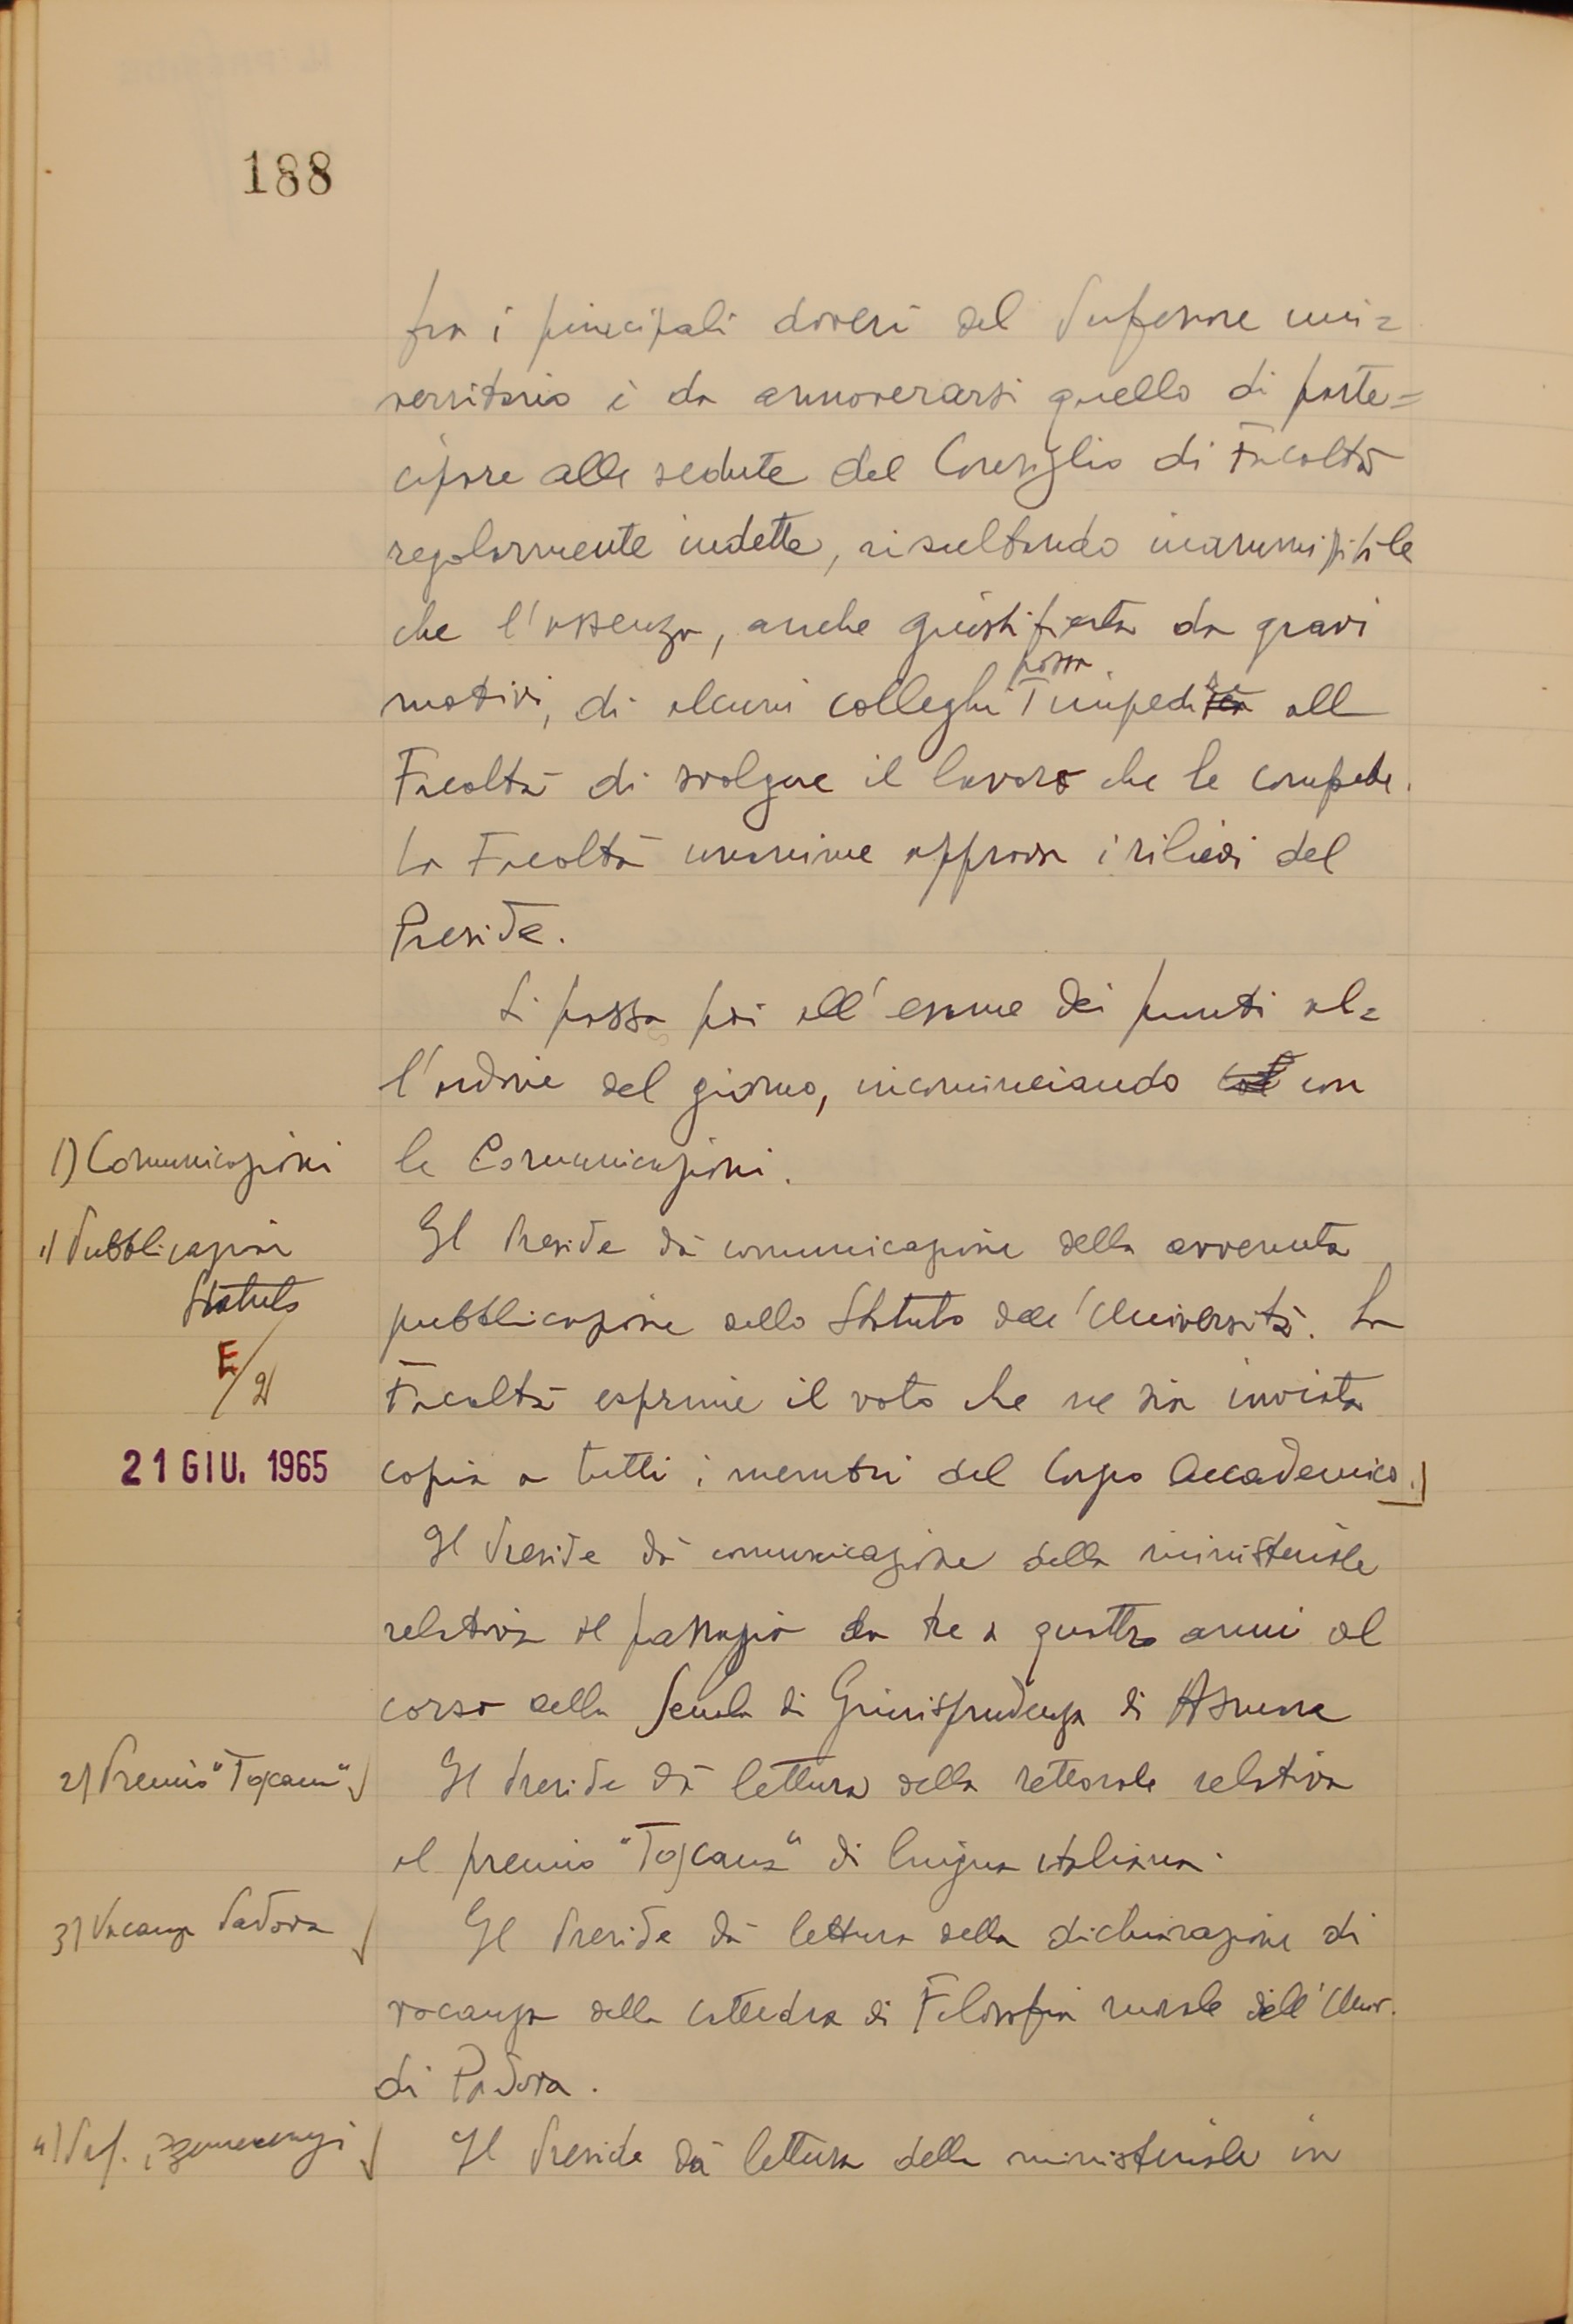 188
fra i principali doveri del Professore uni=
versitario è da annoverarsi quello di parte=
cipare alle sedute del Consiglio di Facoltà
regolarmente indette, risultando inammissibile
che l'assenza, anche giustificata da gravi
motivi, di alcuni colleghi possa impedire alla
Facoltà di svolgere il lavoro che le compete.
La Facoltà unanime approva i rilievi del
Preside.
Si passa poi all'esame dei punti al=
l'ordine del giorno, incominciando col con
1) Comunicazioni
le Comunicazioni.
1) Pubblicazione
Statuto
E/2
21 GIU. 1965
Il Preside dà comunicazione della avvenuta
pubblicazione dello Statuto dell'Università. La
Facoltà esprime il voto che ne sia inviata
copia a tutti i membri del Corpo Accademico.
Il Preside dà comunicazione della ministeriale
relativa al passaggio da tre a quattro anni al
corso della Scuola di Giurisprudenza di Asmara
2) Premio "Toscana"
Il Preside dà lettura della rettorale relativa
al premio "Toscana" di lingua italiana.
3) Vacanza Padova
Il Preside dà lettura della dichiarazione di
vacanza della cattedra di Filosofia morale dell'Univ.
di Padova.
4) Prof.
Il Preside dà lettura della ministeriale in